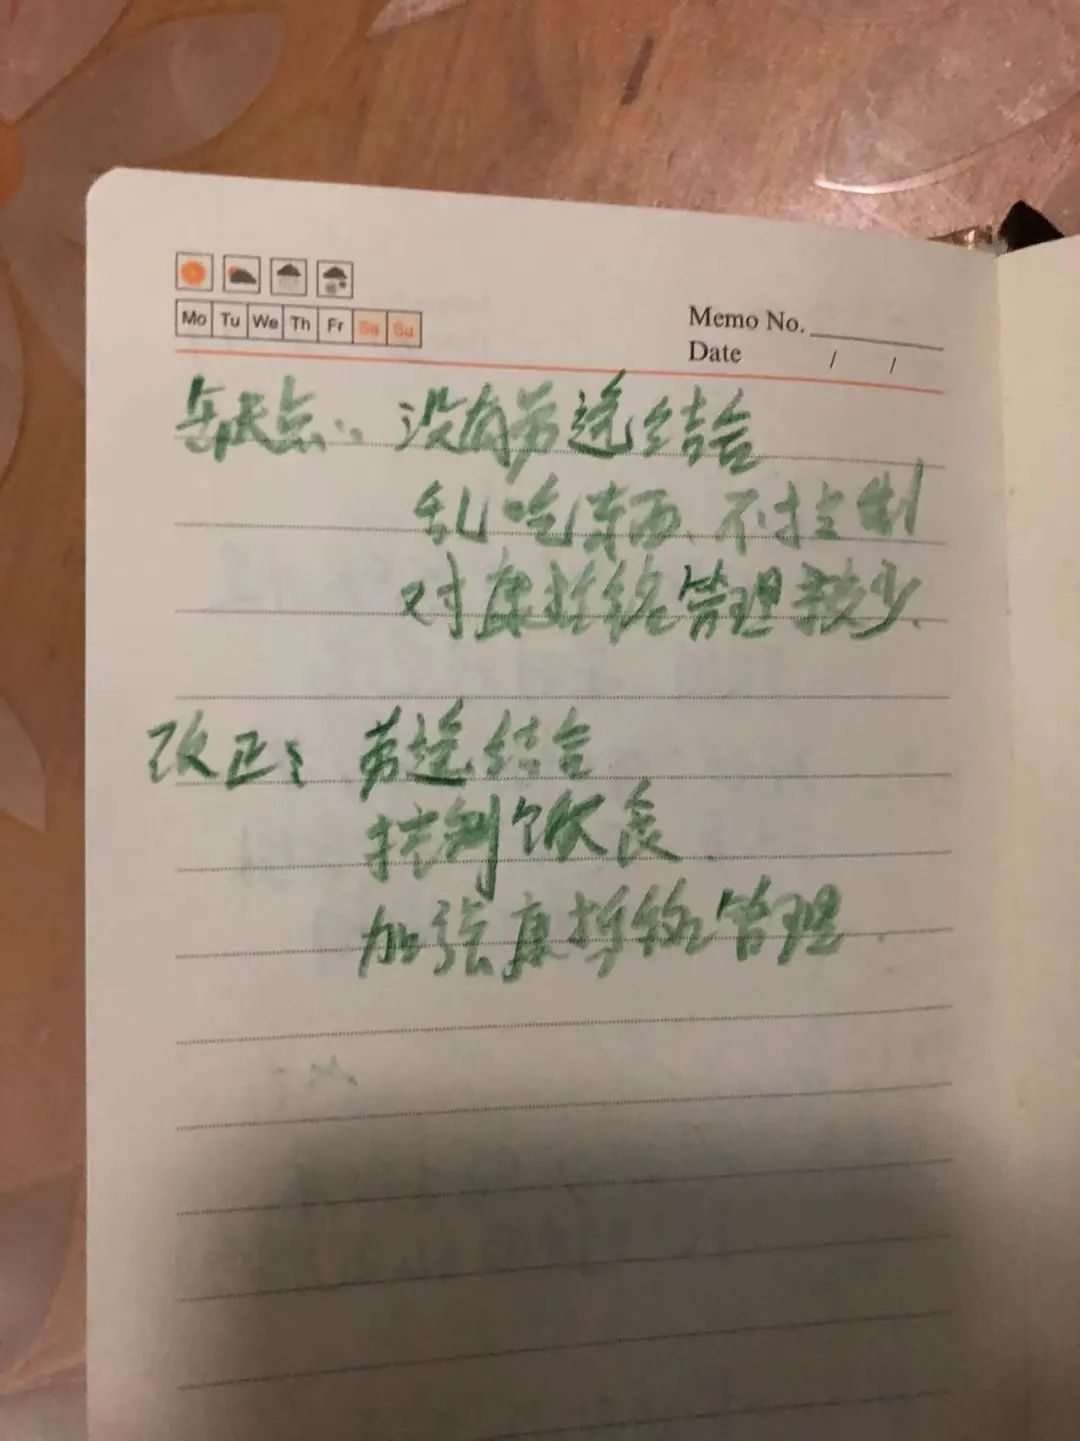 Mo Tu We Th Fr Sa Su
Memo No.
Date / /
缺点：没有劳逸结合
乱吃东西、不控制
对康托络管理缺少.
改正：劳逸结合
控制饮食
加强康托络管理.